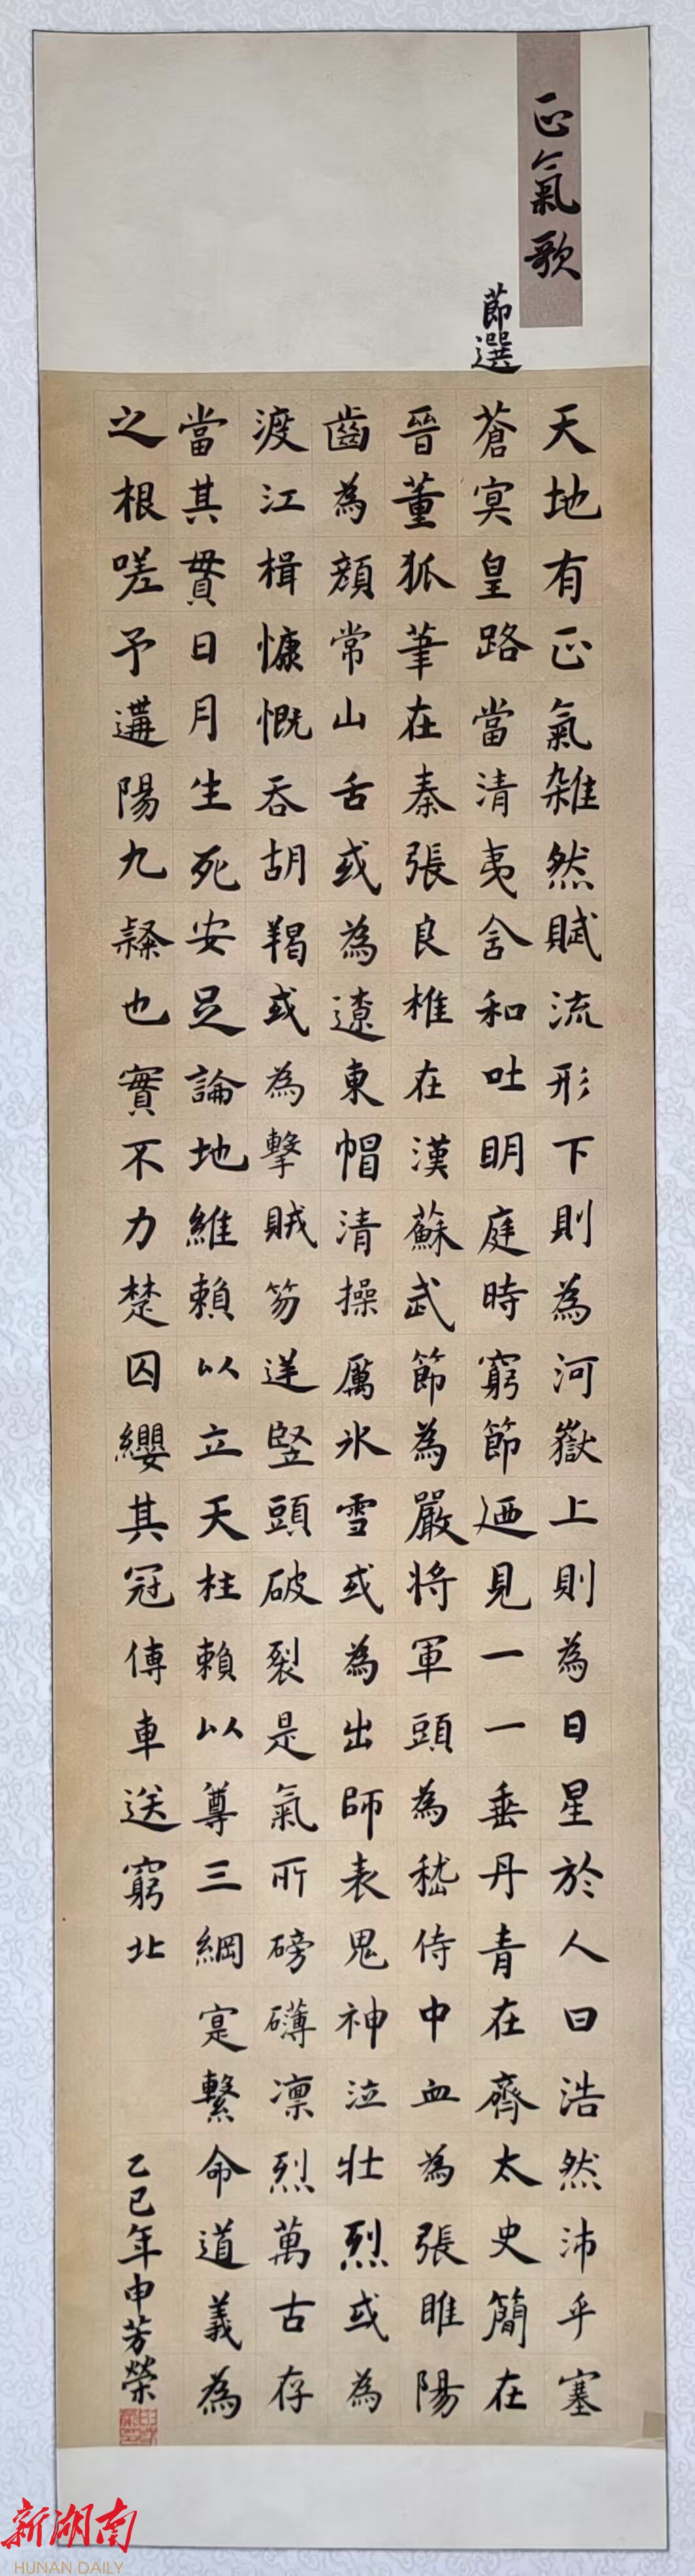 正氣歌
節選
天地有正氣雜然賦流形下則為河嶽上則為日星於人曰浩然沛乎塞
蒼冥皇路當清夷含和吐明庭時窮節迺見一一垂丹青在齊太史簡在
晉董狐筆在秦張良椎在漢蘇武節為嚴將軍頭為嵇侍中血為張睢陽
齒為顏常山舌或為遼東帽清操厲氷雪或為出師表鬼神泣壯烈或為
渡江楫慷慨吞胡羯或為擊賊笏逆豎頭破裂是氣所磅礴凛烈萬古存
當其貫日月生死安足論地維賴以立天柱賴以尊三綱寔繫命道義為
之根嗟予遘陽九隸也實不力楚囚纓其冠傳車送窮北
乙巳年申芳榮
新湖南
HUNAN DAILY